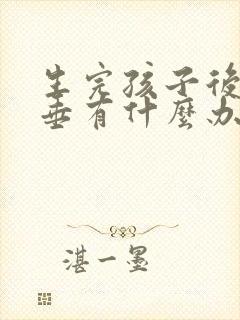 生完孩子後
垂有什麼办
湛一墨